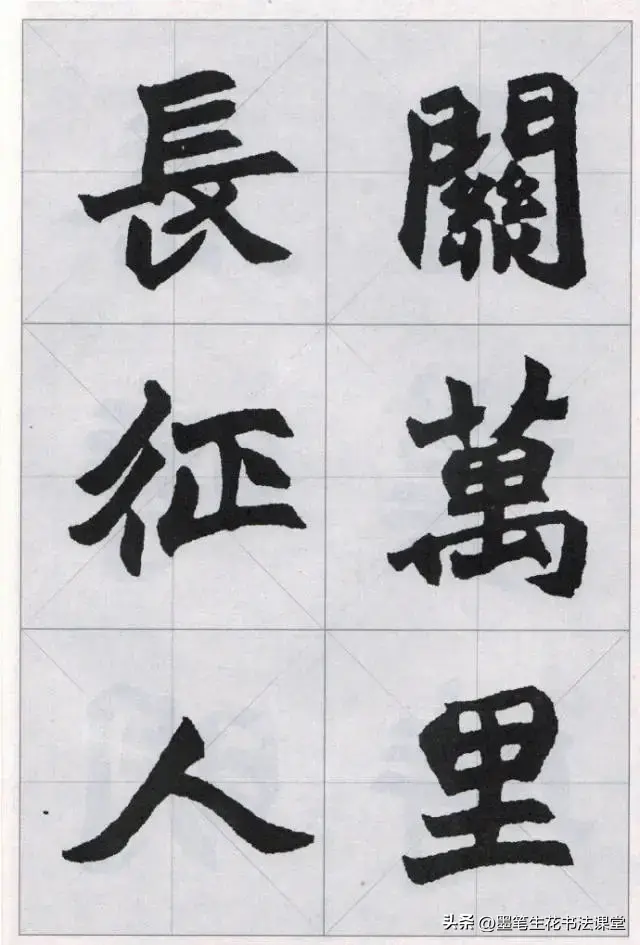 關萬里
長征人
头条 @墨笔生花书法课堂